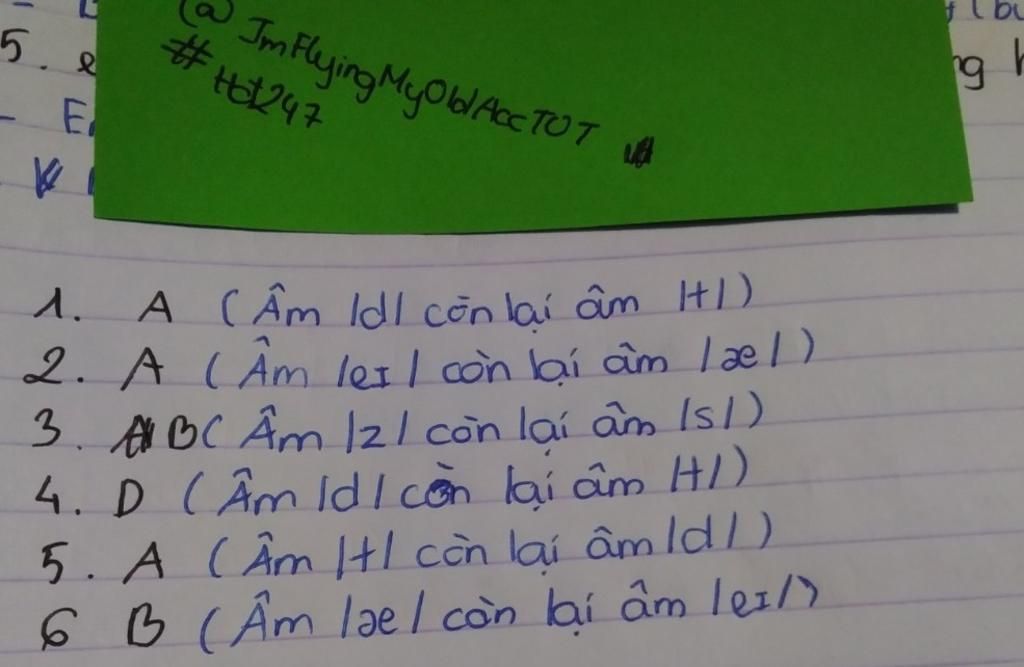 5. e
- E
@ ImFlyingMyOldAccTOT
# Hot247
(bu
ng h
1. A (Âm /d/ còn lại âm /t/)
2. A (Âm /eɪ/ còn lại âm /æ/)
3. B (Âm /z/ còn lại âm /s/)
4. D (Âm /d/ còn lại âm /t/)
5. A (Âm /t/ còn lại âm /d/)
6 B (Âm /æ/ còn lại âm /eɪ/)